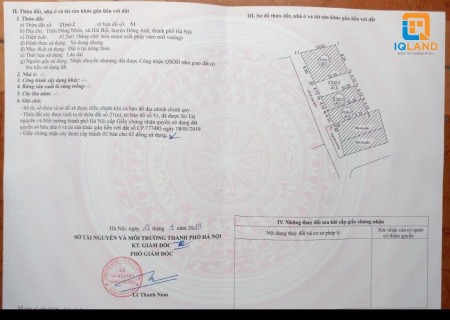 IQLAND
II. Thửa đất, nhà ở và tài sản khác gắn liền với đất
1. Thửa đất:
a) Thửa đất số: 21(st)-2 tờ bản đồ số: 51
b) Địa chỉ: Thôn Đồng Nhân, xã Hải Bối, huyện Đông Anh, thành phố Hà Nội
c) Diện tích: (bằng chữ: bốn mươi mốt phẩy năm mét vuông)
d) Hình thức sử dụng: Sử dụng chung
đ) Mục đích sử dụng: Đất ở tại nông thôn
e) Thời hạn sử dụng: Lâu dài
g) Nguồn gốc sử dụng: Nhận chuyển nhượng đất được Công nhận QSDĐ như giao đất có
thu tiền sử dụng đất
2. Nhà ở: -/-
3. Công trình xây dựng khác: -/-
4. Rừng sản xuất là rừng trồng: -/-
5. Cây lâu năm: -/-
6. Ghi chú:
- Thửa đất, số tờ và sơ đồ sẽ được điều chỉnh khi có bản đồ địa chính chính quy
- Thửa đất này được tách ra từ thửa đất số 21(st), tờ bản đồ số 51, đã được Sở Tài
nguyên và Môi trường thành phố Hà Nội cấp Giấy chứng nhận quyền sử dụng đất
quyền sở hữu nhà ở và tài sản khác gắn liền với đất số CP 777485 ngày
- Giấy chứng nhận này được cấp thành 02 bản cho 02 đồng sử dụng
Hà Nội, ngày tháng năm
SỞ TÀI NGUYÊN VÀ MÔI TRƯỜNG THÀNH PHỐ HÀ NỘI
KT. GIÁM ĐỐC
PHÓ GIÁM ĐỐC
Lê Thanh Nam
III. Sơ đồ thửa đất, nhà ở và tài sản khác gắn liền với đất
IV. Những thay đổi sau khi cấp giấy chứng nhận
Nội dung thay đổi và cơ sở pháp lý
Xác nhận của cơ quan
có thẩm quyền